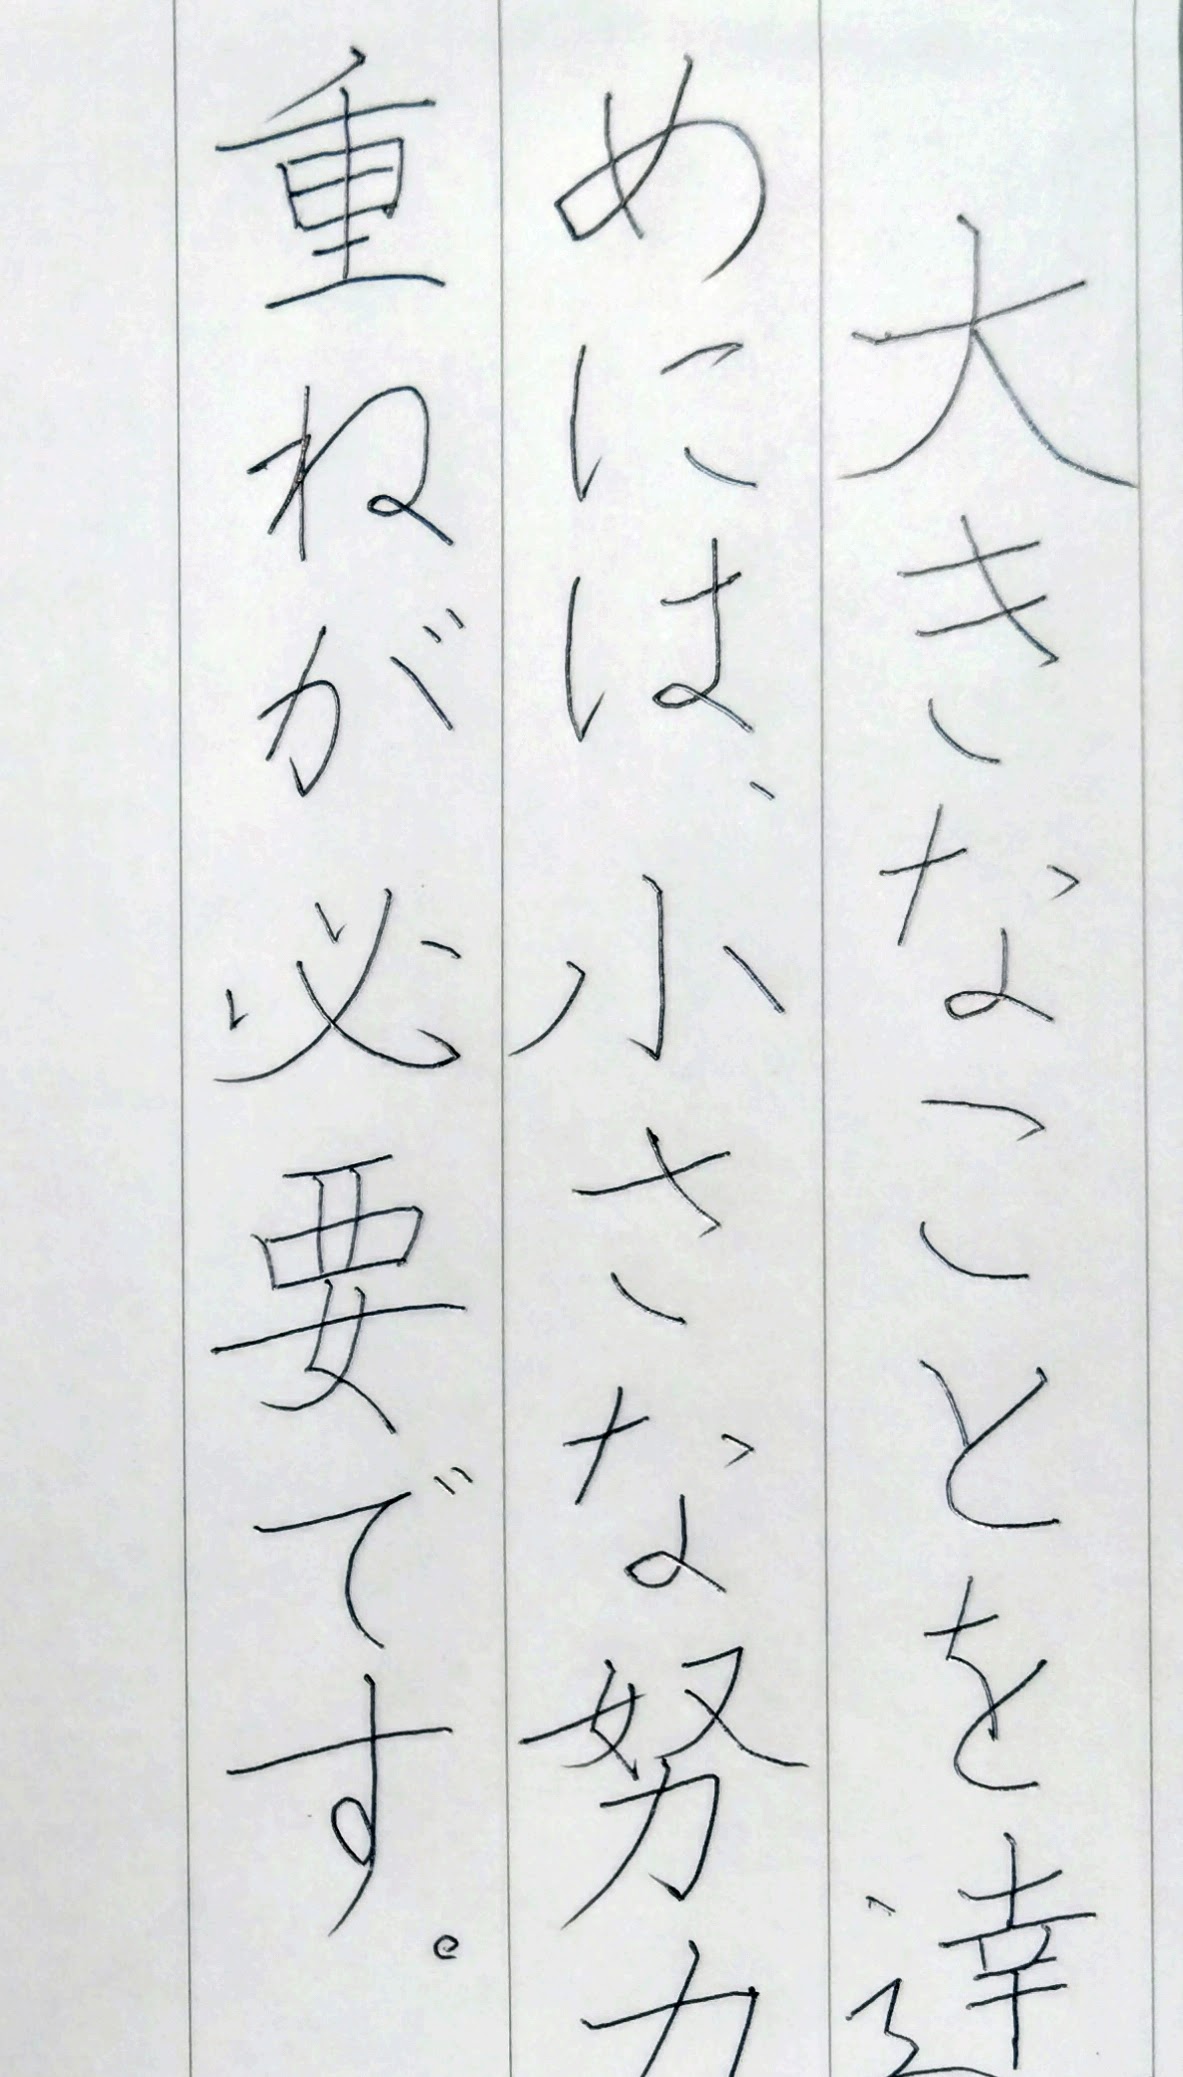 大きなことを達
めには、小さな努力
重ねが必要です。